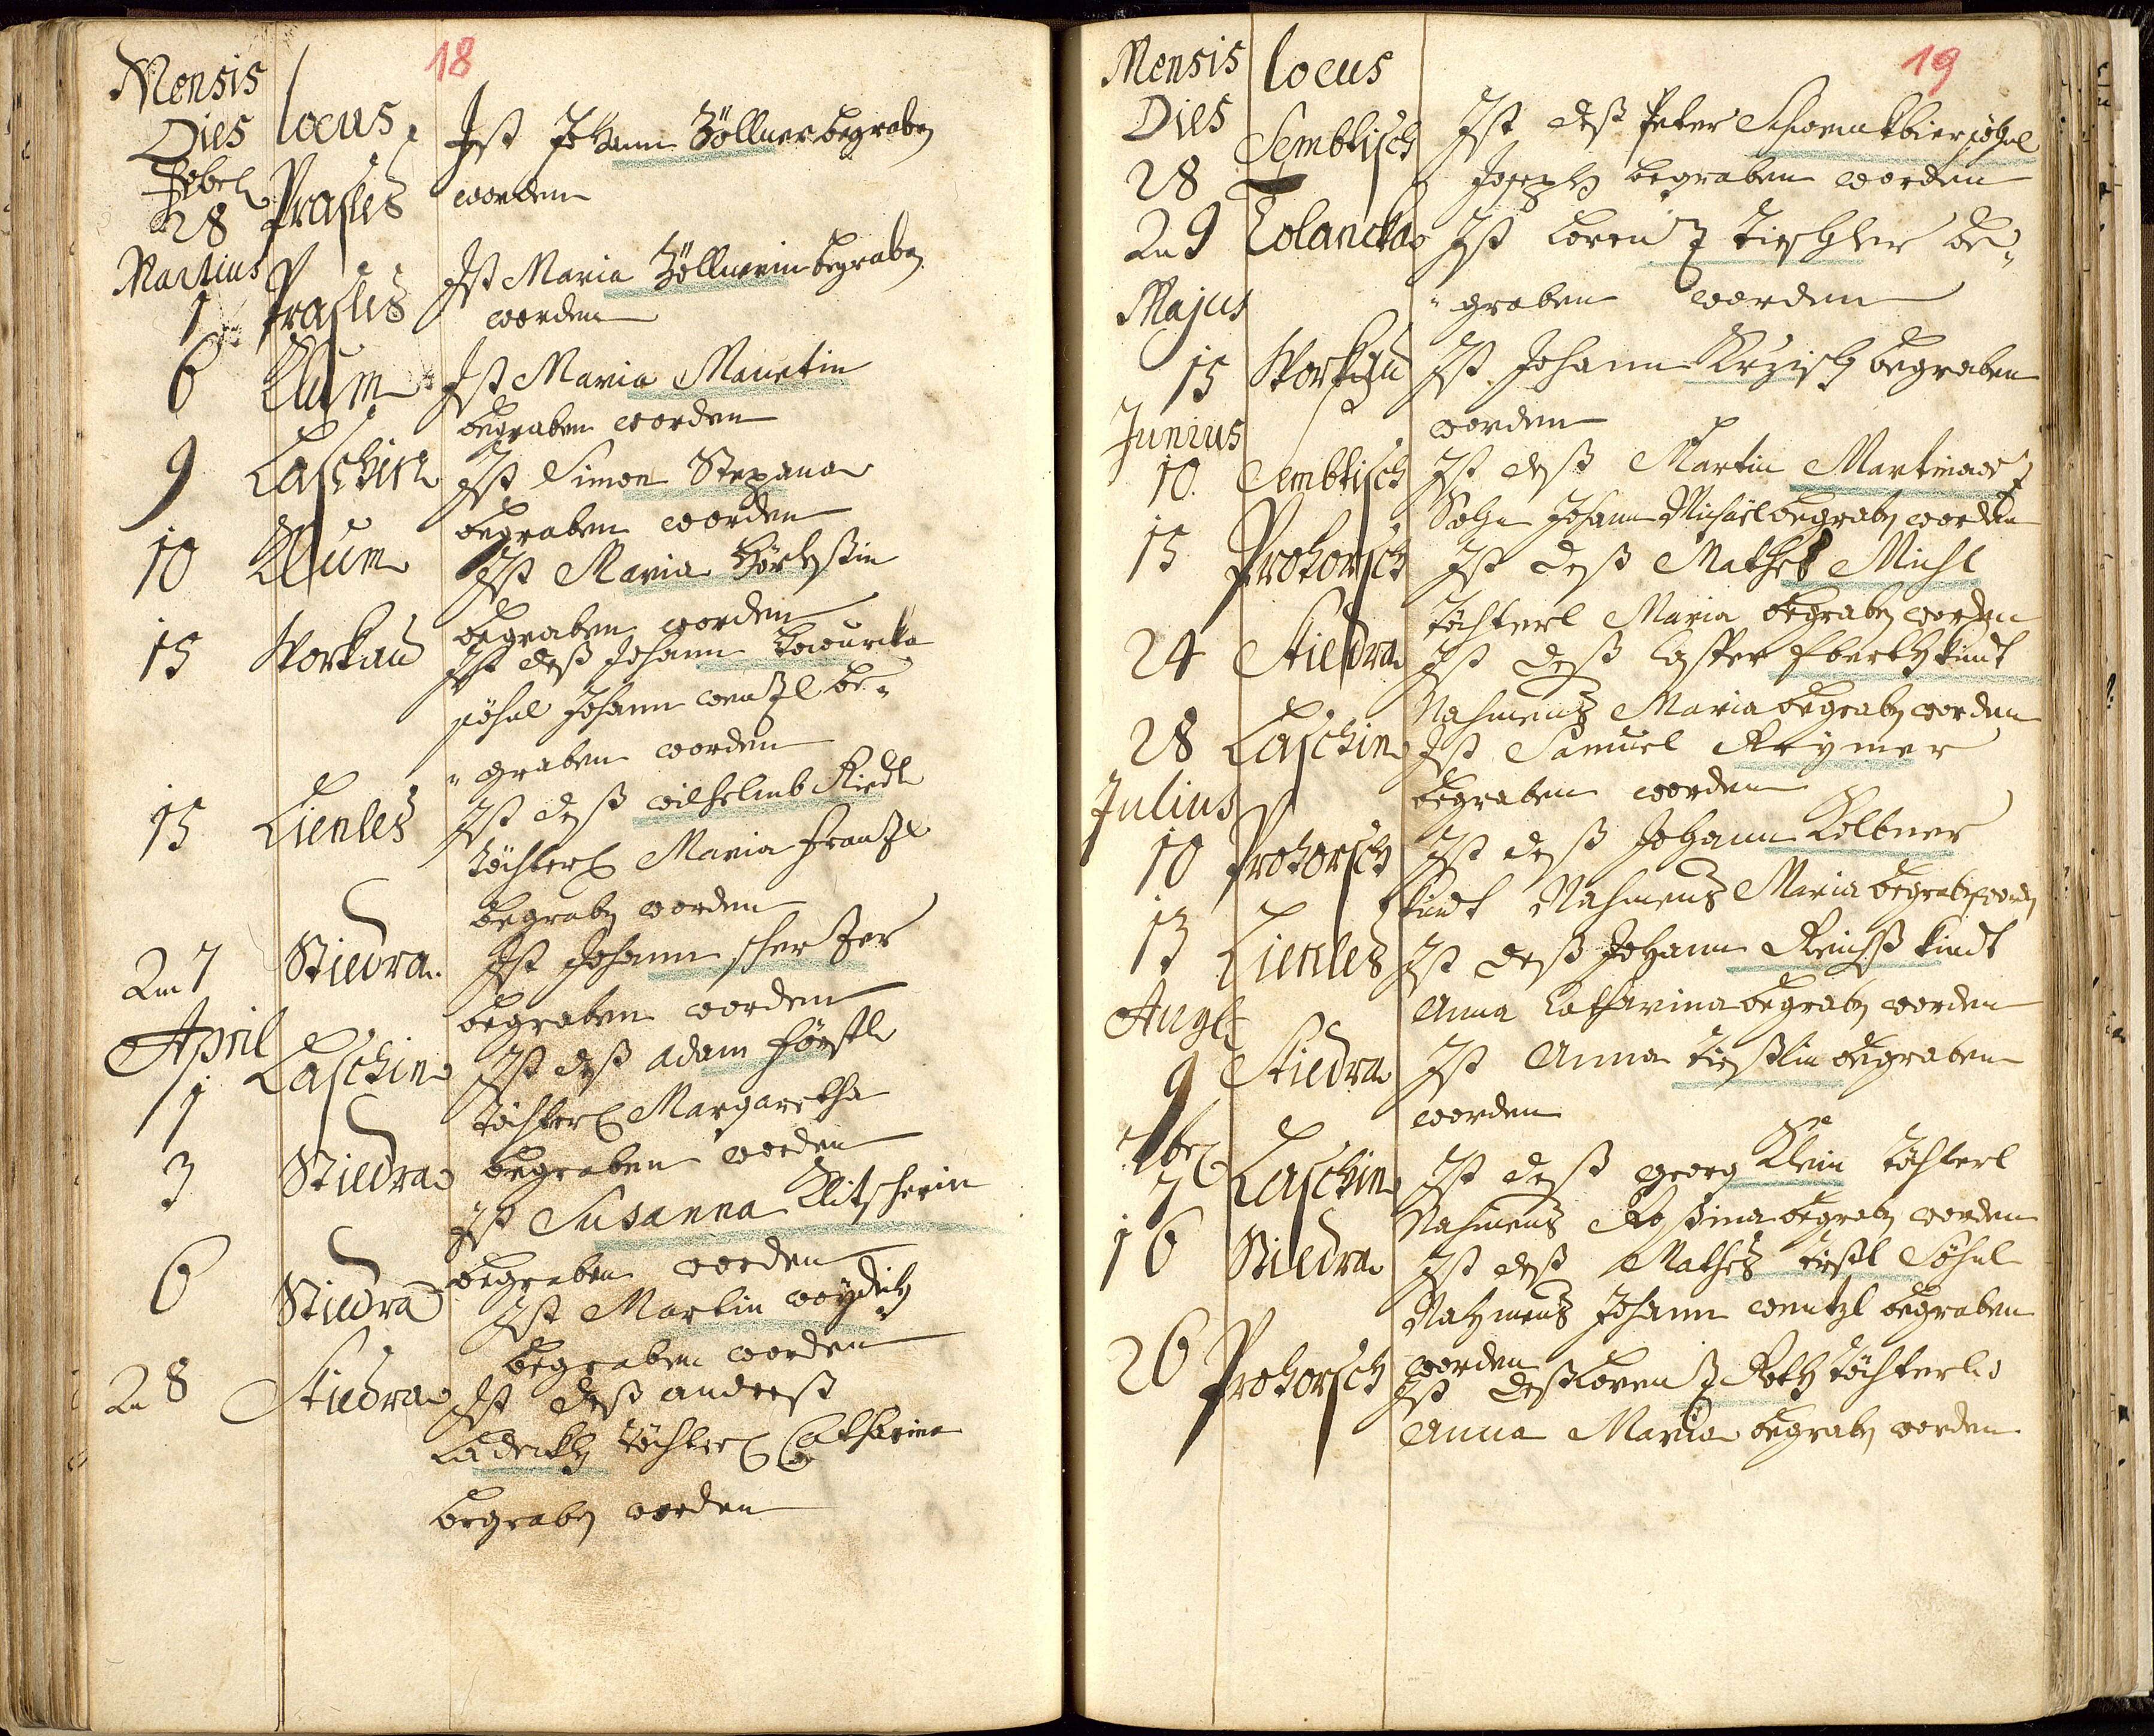 18
Mensis
Dies locus
Febr
28 Prasles Ist Johann Zöllner begraben
worden
Martius
1 Prasles Ist Maria Zöllnerin begraben
worden
6 Klum Ist Maria Mauctin
begraben worden
9 Laschin Ist Simon Stepana
begraben worden
10 Klum Ist Maria
begraben worden
15 Workau Ist deß Johann
söhnl Johann wentzl be„
„graben worden
15 Lienles Ist deß wilhelmb Riedl
töchterl Maria Frantzl
begraben worden
27 Stiedra Ist Johann schertzer
begraben worden
April
1 Laschin Ist deß Adam Förstl
töchterl Margaretha
begraben worden
3 Stiedra Ist Susanna Klitscherin
begraben worden
6 Stiedra Ist Martin woydich
begraben worden
28 Stiedra Ist deß andreß
töchterl Catharina
begraben worden
19
Mensis locus
Dies
28 Sembtisch Ist deß Peter söhnl
Joseph begraben worden
29 Tolancka Ist Lorentz Tischler be„
„graben worden
Majus
15 Workau Ist Johann Krzisch begraben
worden
Junius
10. Sembtisch Ist deß Martin Martinowz
Sohn Johann Michael begraben worden
15 Prohorsch Ist deß Mathes Michl
töchterl Maria begraben worden
24 Stiedra Ist deß Casper Eberth kindt
Nahmens Maria begraben worden
28 Laschin Ist Samuel Reymer
begraben worden
Julius
10 Prohorsch Ist deß Johann Kolbner
kindt Nahmens Maria begraben worden
13 Lienles Ist deß Johann Reichß kindt
Anna Catharina begraben worden
Aug
9 Stiedra Ist Anna Tischlin begraben
worden
7br
7 Laschin Ist deß Georg Klein töchterl
Nahmens Rosina begraben worden
16 Stiedra Ist deß Mathes söhnl
Nahmens Johann wentzl begraben
worden
26 Prohorsch Ist deß Lorentz Roth töchterl
Anna Maria begraben worden